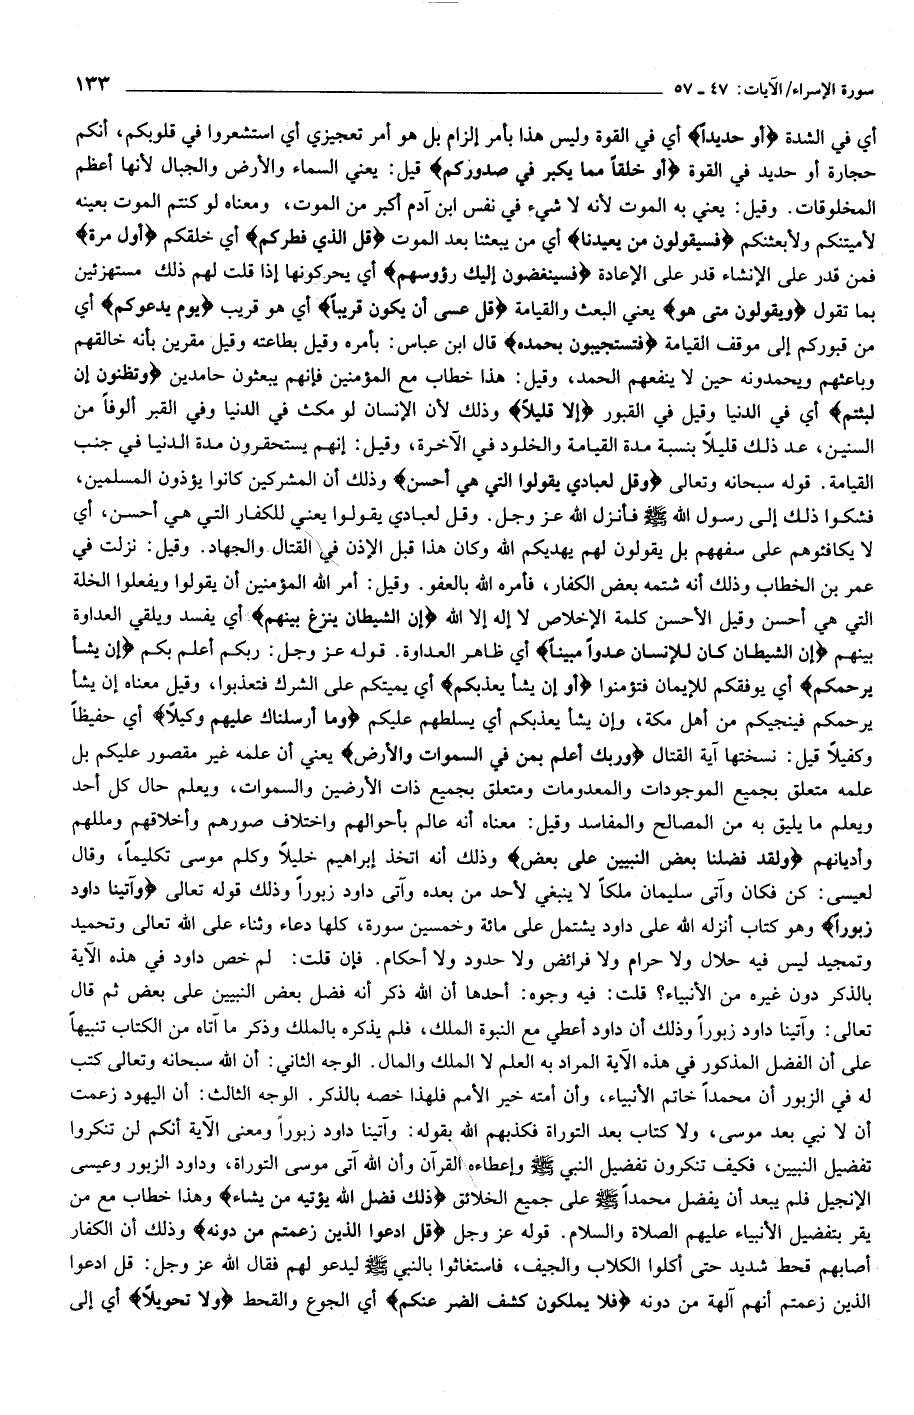 سورة الإسراء/ الآيات: ٤٧ ـ ٥٧ ١٣٣
أي في الشدة ﴿أو حديداً﴾ أي في القوة وليس هذا بأمر إلزام بل هو أمر تعجيزي أي استشعروا في قلوبكم، أنكم
حجارة أو حديد في القوة ﴿أو خلقاً مما يكبر في صدوركم﴾ قيل: يعني السماء والأرض والجبال لأنها أعظم
المخلوقات. وقيل: يعني به الموت لأنه لا شيء في نفس ابن آدم أكبر من الموت، ومعناه لو كنتم الموت بعينه
لأميتنكم ولأبعثنكم ﴿فسيقولون من يعيدنا﴾ أي من يبعثنا بعد الموت ﴿قل الذي فطركم﴾ أي خلقكم ﴿أول مرة﴾
فمن قدر على الإنشاء قدر على الإعادة ﴿فسينغضون إليك رؤوسهم﴾ أي يحركونها إذا قلت لهم ذلك مستهزئين
بما تقول ﴿ويقولون متى هو﴾ يعني البعث والقيامة ﴿قل عسى أن يكون قريباً﴾ أي هو قريب ﴿يوم يدعوكم﴾ أي
من قبوركم إلى موقف القيامة ﴿فتستجيبون بحمده﴾ قال ابن عباس: بأمره وقيل بطاعته وقيل مقرين بأنه خالقهم
وباعثهم ويحمدونه حين لا ينفعهم الحمد، وقيل: هذا خطاب مع المؤمنين فإنهم يبعثون حامدين ﴿وتظنون إن
لبثتم﴾ أي في الدنيا وقيل في القبور ﴿إلا قليلاً﴾ وذلك لأن الإنسان لو مكث في الدنيا وفي القبر ألوفاً من
السنين، عد ذلك قليلاً بنسبة مدة القيامة والخلود في الآخرة، وقيل: إنهم يستحقرون مدة الدنيا في جنب
القيامة. قوله سبحانه وتعالى ﴿وقل لعبادي يقولوا التي هي أحسن﴾ وذلك أن المشركين كانوا يؤذون المسلمين،
فشكوا ذلك إلى رسول الله ﷺ فأنزل الله عز وجل. وقل لعبادي يقولوا يعني للكفار التي هي أحسن، أي
لا يكافئوهم على سفههم بل يقولون لهم يهديكم الله وكان هذا قبل الإذن في القتال والجهاد. وقيل: نزلت في
عمر بن الخطاب وذلك أنه شتمه بعض الكفار، فأمره الله بالعفو. وقيل: أمر الله المؤمنين أن يقولوا ويفعلوا الخلة
التي هي أحسن وقيل الأحسن كلمة الإخلاص لا إله إلا الله ﴿إن الشيطان ينزغ بينهم﴾ أي يفسد ويلقي العداوة
بينهم ﴿إن الشيطان كان للإنسان عدواً مبيناً﴾ أي ظاهر العداوة. قوله عز وجل: ربكم أعلم بكم ﴿إن يشأ
يرحمكم﴾ أي يوفقكم للإيمان فتؤمنوا ﴿أو إن يشأ يعذبكم﴾ أي يميتكم على الشرك فتعذبوا، وقيل معناه إن يشأ
يرحمكم فينجيكم من أهل مكة، وإن يشأ يعذبكم أي يسلطهم عليكم ﴿وما أرسلناك عليهم وكيلاً﴾ أي حفيظاً
وكفيلاً قيل: نسختها آية القتال ﴿وربك أعلم بمن في السموات والأرض﴾ يعني أن علمه غير مقصور عليكم بل
علمه متعلق بجميع الموجودات والمعدومات ومتعلق بجميع ذات الأرضين والسموات، ويعلم حال كل أحد
ويعلم ما يليق به من المصالح والمفاسد وقيل: معناه أنه عالم بأحوالهم واختلاف صورهم وأخلاقهم ومللهم
وأديانهم ﴿ولقد فضلنا بعض النبيين على بعض﴾ وذلك أنه اتخذ إبراهيم خليلاً وكلم موسى تكليماً، وقال
لعيسى: كن فكان وآتى سليمان ملكاً لا ينبغي لأحد من بعده وآتى داود زبوراً وذلك قوله تعالى ﴿وآتينا داود
زبوراً﴾ وهو كتاب أنزله الله على داود يشتمل على مائة وخمسين سورة، كلها دعاء وثناء على الله تعالى وتحميد
وتمجيد ليس فيه حلال ولا حرام ولا فرائض ولا حدود ولا أحكام. فإن قلت: لم خص داود في هذه الآية
بالذكر دون غيره من الأنبياء؟ قلت: فيه وجوه: أحدها أن الله ذكر أنه فضل بعض النبيين على بعض ثم قال
تعالى: وآتينا داود زبوراً وذلك أن داود أعطي مع النبوة الملك، فلم يذكره بالملك وذكر ما آتاه من الكتاب تنبيهاً
على أن الفضل المذكور في هذه الآية المراد به العلم لا الملك والمال. الوجه الثاني: أن الله سبحانه وتعالى كتب
له في الزبور أن محمداً خاتم الأنبياء، وأن أمته خير الأمم فلهذا خصه بالذكر. الوجه الثالث: أن اليهود زعمت
أن لا نبي بعد موسى، ولا كتاب بعد التوراة فكذبهم الله بقوله: وآتينا داود زبوراً ومعنى الآية أنكم لن تنكروا
تفضيل النبيين، فكيف تنكرون تفضيل النبي ﷺ وإعطاءه القرآن وأن الله آتى موسى التوراة، وداود الزبور وعيسى
الإنجيل فلم يبعد أن يفضل محمداً ﷺ على جميع الخلائق ﴿ذلك فضل الله يؤتيه من يشاء﴾ وهذا خطاب مع من
يقر بتفضيل الأنبياء عليهم الصلاة والسلام. قوله عز وجل ﴿قل ادعوا الذين زعمتم من دونه﴾ وذلك أن الكفار
أصابهم قحط شديد حتى أكلوا الكلاب والجيف، فاستغاثوا بالنبي ﷺ ليدعو لهم فقال الله عز وجل: قل ادعوا
الذين زعمتم أنهم آلهة من دونه ﴿فلا يملكون كشف الضر عنكم﴾ أي الجوع والقحط ﴿ولا تحويلاً﴾ أي إلى